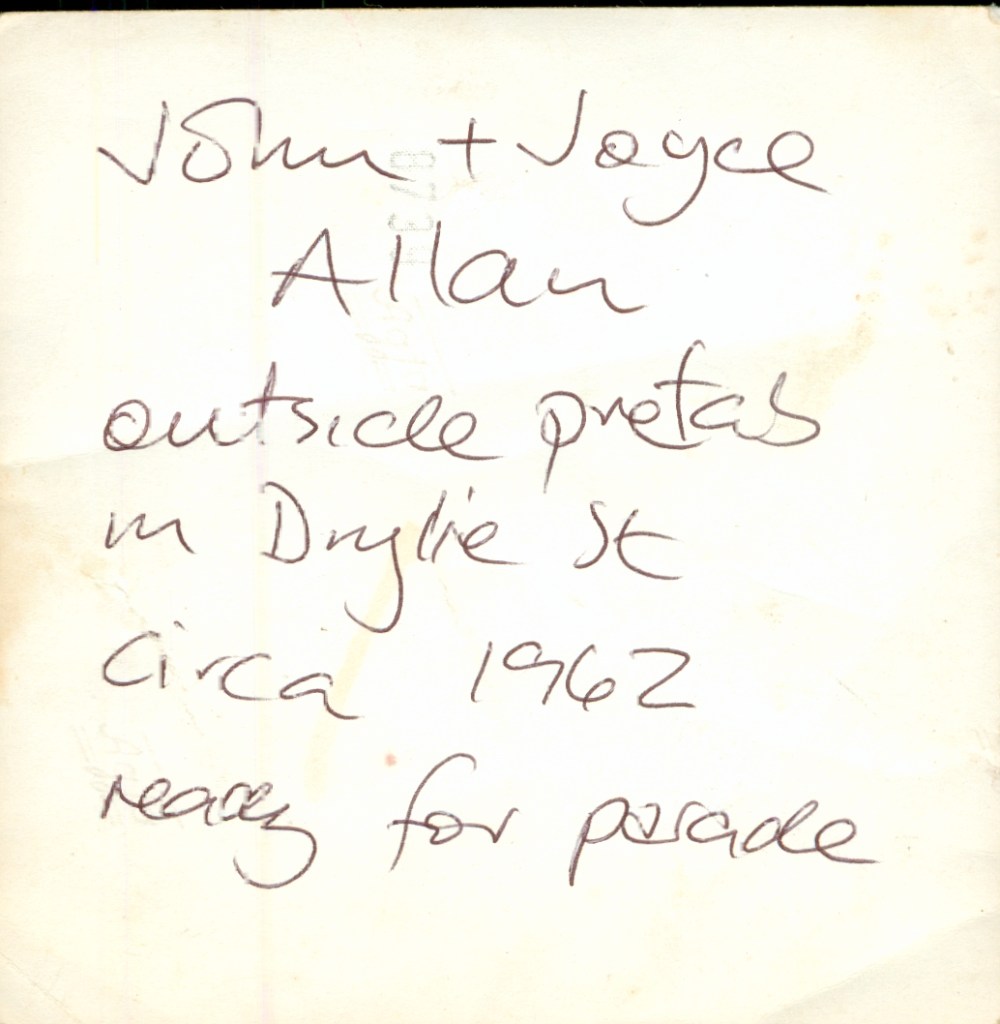 John + Joyce
Allan
outside prefab
in Drylie St
circa 1962
ready for parade